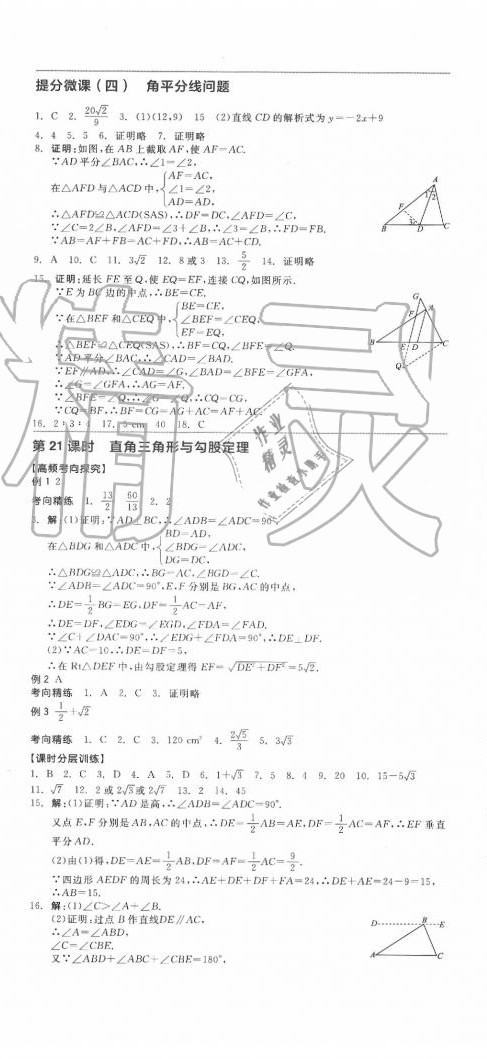 提分微课(四) 角平分线问题
1. C 2. 20√2/9 3. (1)(12,9) 15 (2)直线 CD 的解析式为 y=-2x+9
4. 4 5. 5 6. 证明略 7. 证明略
8. 证明:如图,在 AB 上截取 AF,使 AF=AC.
∵AD 平分∠BAC,∴∠1=∠2,
在△AFD 与△ACD 中, { AF=AC, ∠1=∠2, AD=AD,
∴△AFD≌△ACD(SAS),∴DF=DC,∠AFD=∠C,
∵∠C=2∠B,∠AFD=∠3+∠B,∴∠3=∠B,∴FD=FB.
∵AB=AF+FB=AC+FD,∴AB=AC+CD.
A F 1 2 3 B D C
9. A 10. C 11. 3√2 12. 8或3 13. 5/2 14. 证明略
15. 证明:延长 FE 至 Q,使 EQ=EF,连接 CQ,如图所示.
∵E 为 BC 边的中点,∴BE=CE.
∵在△BEF 和△CEQ 中, { BE=CE, ∠BEF=∠CEQ, EF=EQ,
∴△BEF≌△CEQ(SAS),∴BF=CQ,∠BFE=∠Q.
∵AD平分∠BAC,∴∠CAD=∠BAD.
∵EF∥AD,∴∠CAD=∠G,∠BAD=∠BFE=∠GFA,
∴∠G=∠GFA,∴AG=AF,
∵∠BFE=∠Q,∴∠G=∠Q,∴CQ=CG,
∵CQ=BF,∴BF=CG=AG+AC=AF+AC.
G F A B E D C Q
16. 2∶3∶4 17. 5 cm 40 18. C
第 21 课时 直角三角形与勾股定理
【高频考向探究】
例 1 2
考向精练 1. 13/2 60/13 2. 2
3. 解:(1)证明:∵AD⊥BC,∴∠ADB=∠ADC=90°.
在△BDG 和△ADC 中, { BD=AD, ∠BDG=∠ADC, DG=DC,
∴△BDG≌△ADC,∴BG=AC,∠BGD=∠C.
∵∠ADB=∠ADC=90°,E,F 分别是 BG,AC 的中点,
∴DE=1/2 BG=EG,DF=1/2 AC=AF,
∴DE=DF,∠EDG=∠EGD,∠FDA=∠FAD.
∵∠C+∠DAC=90°,∴∠EDG+∠FDA=90°,∴DE⊥DF.
(2)∵AC=10,∴DE=DF=5,
∴在 Rt△DEF 中,由勾股定理得 EF=√(DE²+DF²)=5√2.
例 2 A
考向精练 1. A 2. C 3. 证明略
例 3 1/2+√2
考向精练 1. C 2. C 3. 120 cm² 4. 2√5/3 5. 3√3
【课时分层训练】
1. B 2. C 3. D 4. A 5. D 6. 1+√3 7. 5 8. 4 9. 20 10. 15-5√3
11. √7 12. 2或2√3或2√7 13. 2 14. 45
15. 解:(1)证明:∵AD 是高,∴∠ADB=∠ADC=90°.
又点 E,F 分别是 AB,AC 的中点,∴DE=1/2 AB=AE,DF=1/2 AC=AF,∴EF 垂直
平分 AD.
(2)由(1)得,DE=AE=1/2 AB,DF=AF=1/2 AC=9/2.
∵四边形 AEDF 的周长为 24,∴AE+DE+DF+FA=24,∴DE+AE=24-9=15,
∴AB=15.
16. 解:(1)∠C>∠A+∠B.
(2)证明:过点 B 作直线DE∥AC,
∴∠A=∠ABD,
∠C=∠CBE.
又∵∠ABD+∠ABC+∠CBE=180°,
D B E A C
精灵
作业
精灵